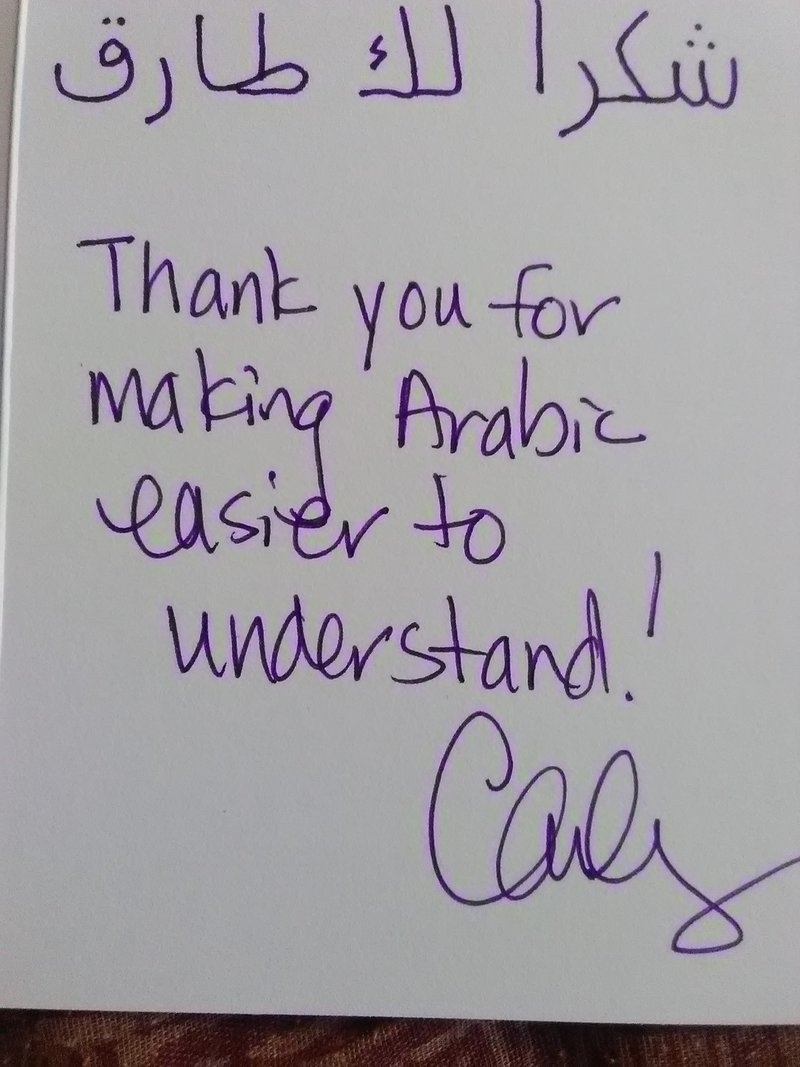 شكرا لك طارق
Thank you for
making Arabic
easier to
understand!
Carly